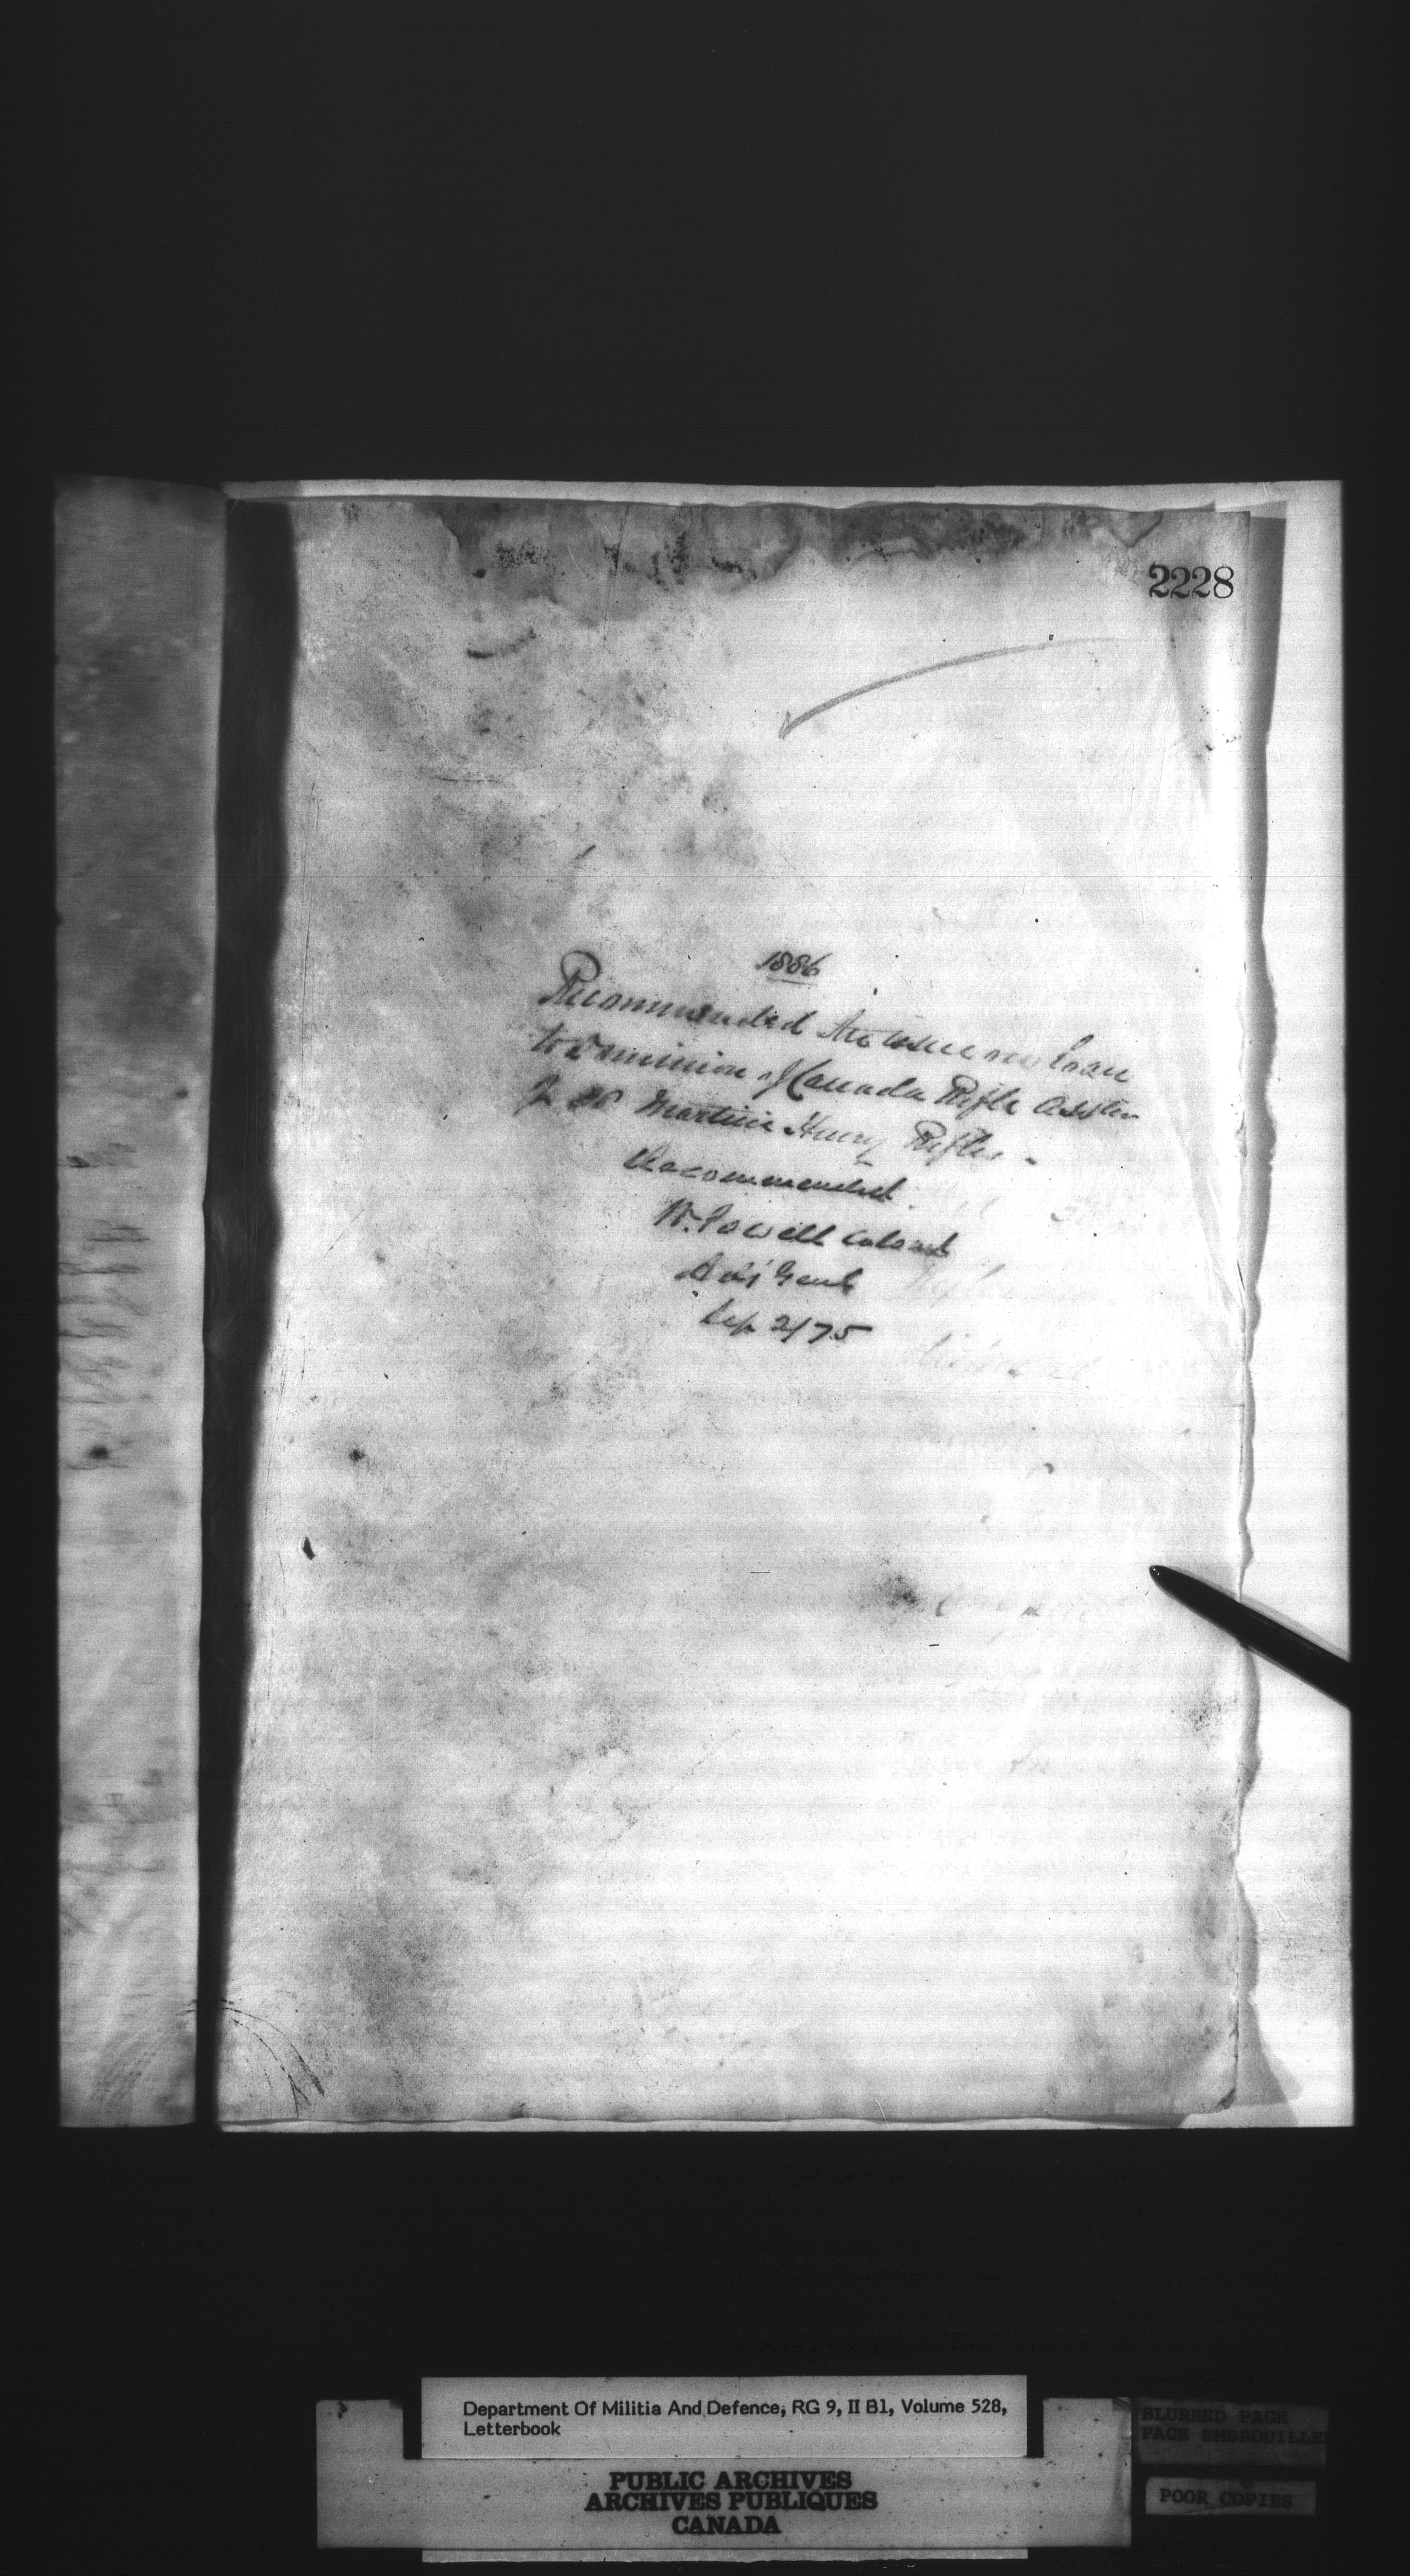 2228
1886
Recommended the issue on Loan
to Dominion of Canada Rifle Asstn
of 20 Martini Henry Rifles.
Recommended
W. Powell Colonel
Adj Genl
Sep 2/75
Department Of Militia And Defence, RG 9, II B1, Volume 528,
Letterbook
BLURRED PAGE
PAGE EMBROUILLEE
POOR COPIES
PUBLIC ARCHIVES
ARCHIVES PUBLIQUES
CANADA